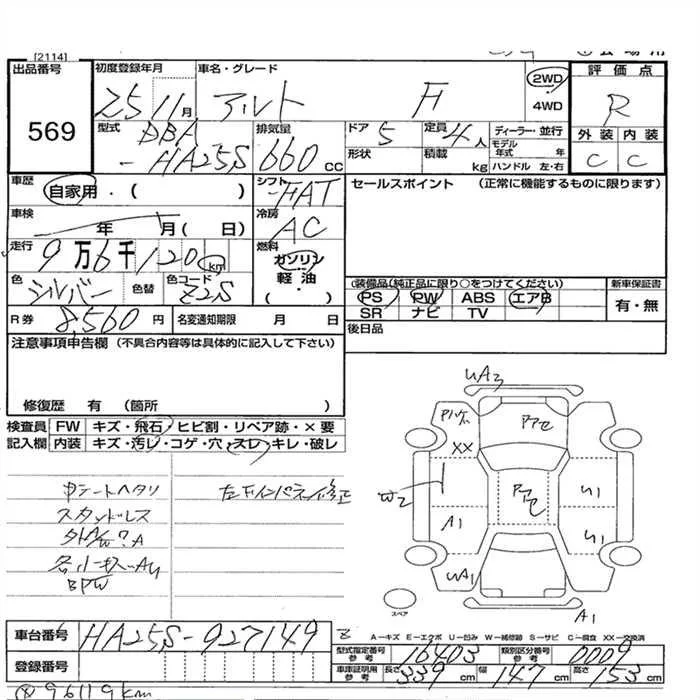 [2114]
出品番号 初度登録年月 車名・グレード 評価点
569 25 11月 アルト F 2WD 4WD R
型式 DBA-HA25S 排気量 660cc ドア 5 定員 4人 ディーラー・並行
形状 積載 kg モデル年式 年 ハンドル 左・右
外装 内装
C C
車歴 自家用・( ) シフト FAT セールスポイント (正常に機能するものに限ります)
車検 年 月( 日) 冷房 AC
走行 9万6千120km 燃料 ガソリン 軽油・( )
色 シルバー 色替 色コード Z2S
(装備品(純正品に限り○をつけてください) 新車保証書
PS PW ABS エアB 有・無
SR ナビ TV
R券 8,560円 名変通知期限 月 日 後日品
注意事項申告欄 (不具合内容等は具体的に記入して下さい)
修復歴 有 (箇所 )
検査員 FW キズ・飛石・ヒビ割・リペア跡・×要
記入欄 内装 キズ・汚レ・コゲ・穴・スレ・キレ・破レ
スタッドレス
BPW
UA3
XX
W2
A1
UA1
U1
U1
A1
スペア
A−キズ E−エクボ U−凹み W−補修跡 S−サビ C−腐食 XX−交換済
車台番号 HA25S-927149
登録番号
型式指定番号 参考 16403 類別区分番号 参考 0009
車庫証明用 参考 長さ 339cm 幅 147cm 高さ 153cm
96119km